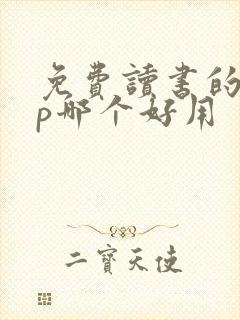 免費讀書的
p哪个好用
二寶天使